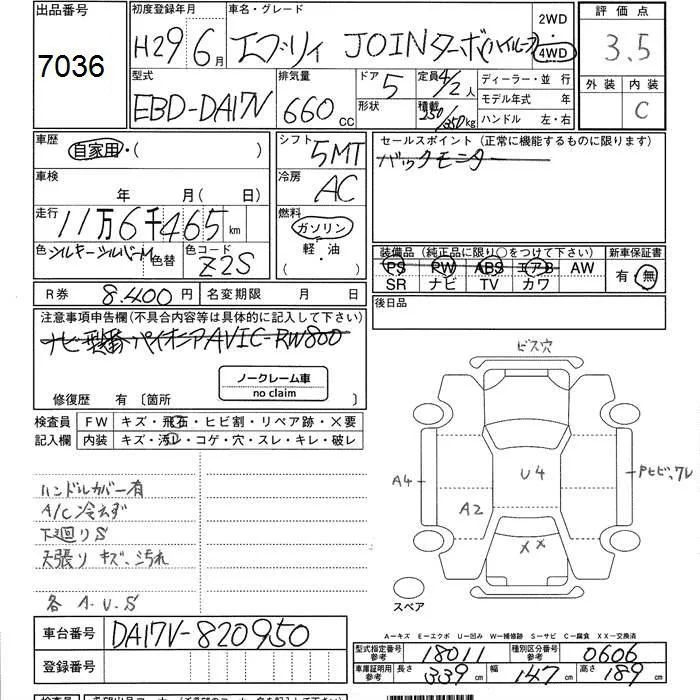 出品番号
7036
初度登録年月 H29年 6月
車名・グレード エブリィ JOINターボ(ハイルーフ)
2WD
4WD
評価点
3.5
外装 内装
C
型式
EBD-DA17V
排気量 660cc
ドア 5
形状
定員 4/2人
積載 250/350kg
ディーラー・並 行
モデル年式 年
ハンドル 左・右
車歴 自家用・( )
車検 年 月( 日)
走行 11万6千465km
色 シルキーシルバーM 色替
色コード Z2S
シフト 5MT
冷房 AC
燃料
ガソリン
・
軽・油
( )
セールスポイント(正常に機能するものに限ります)
バックモニター
装備品(純正品に限り○をつけて下さい)
PS PW ABS エアB AW
SR ナビ TV カワ
新車保証書
有・無
R券 8.400円
名変期限 月 日
後日品
注意事項申告欄(不具合内容等は具体的に記入して下さい)
ナビ型番 パイオニアAVIC-RW800
ノークレーム車
no claim
修復歴 有〔箇所 〕
検査員
記入欄
FW キズ・飛石・ヒビ割・リペア跡・×要
内装 キズ・汚レ・コゲ・穴・スレ・キレ・破レ
ハンドルカバー有
A/C冷えず
下廻りS
天張りキズ、汚れ
各 A.U.S
ビス穴
A4
U4
Pヒビ、ワレ
A2
XX
スペア
A-キズ E-エクボ U-凹み W-補修跡 S-サビ C-腐食 XX-交換済
車台番号 DA17V-820950
登録番号
型式指定番号 参考 18011
種別区分番号 参考 0606
車庫証明用 参考 長さ 339cm 幅 147cm 高さ 189cm